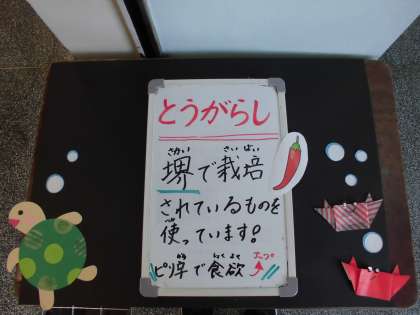 とうがらし
さかい さいばい
堺で栽培
されているものを
つか
使っています!
から しょくよく アップ
ピリ辛で食欲